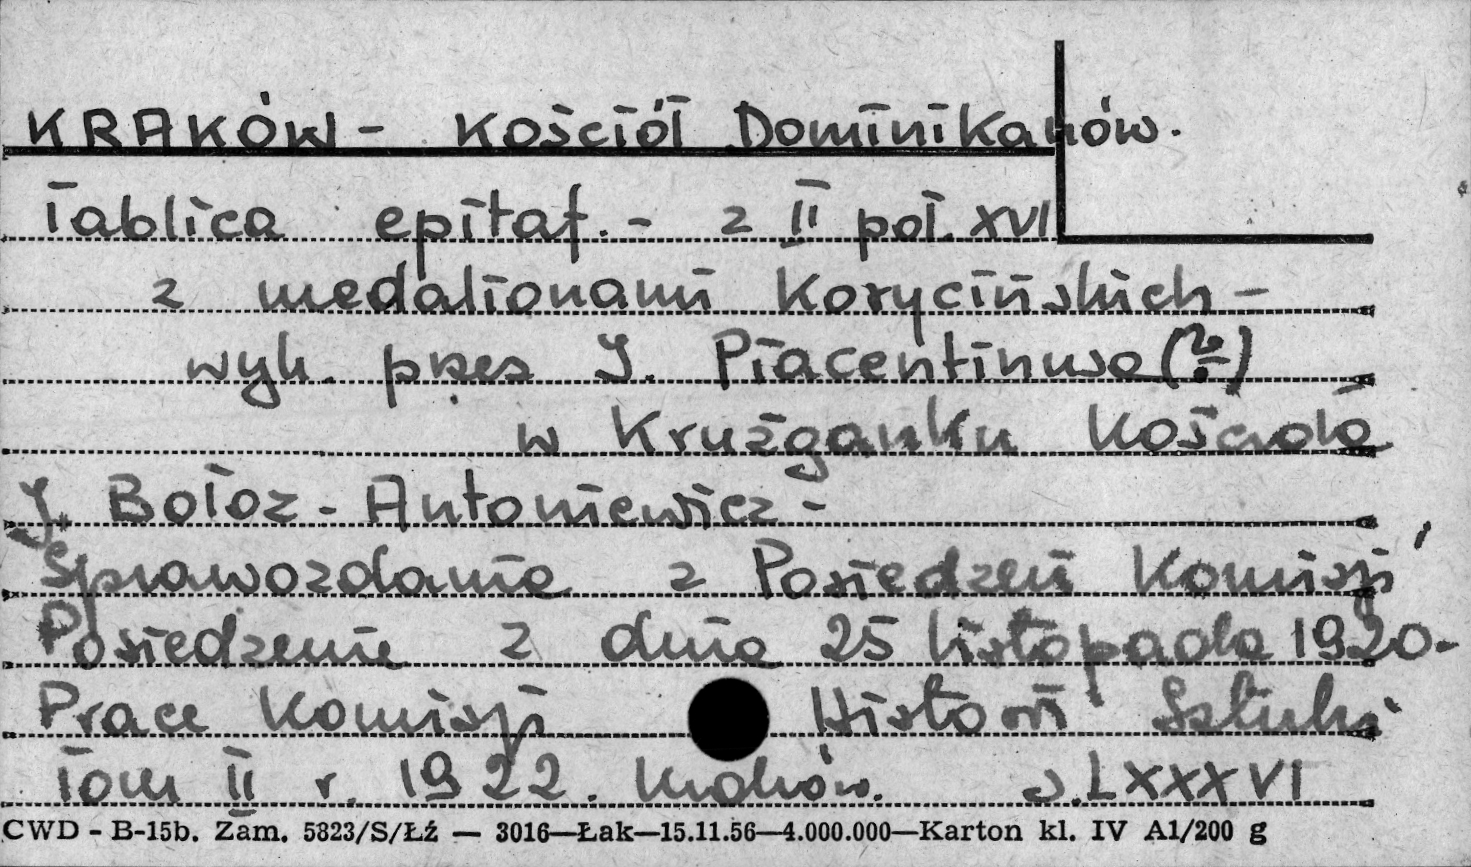 KRAKÓW - Kościół Dominikanów.
Tablica epitaf. - z II poł. XVI
z medalionami Korycińskich -
wyk. przez J. Piacentinuso (?)
w Krużganku Kościoła
J. Bołoz - Antoniewicz -
Sprawozdanie z Posiedzeń Komisji
Posiedzenie z dnia 25 listopada 1920 -
Prace Komisji Historii Sztuki
Tom II r. 1922. Kraków. s. LXXXVI
CWD - B-15b. Zam. 5823/S/Łź — 3016—Łak—15.11.56—4.000.000—Karton kl. IV A1/200 g